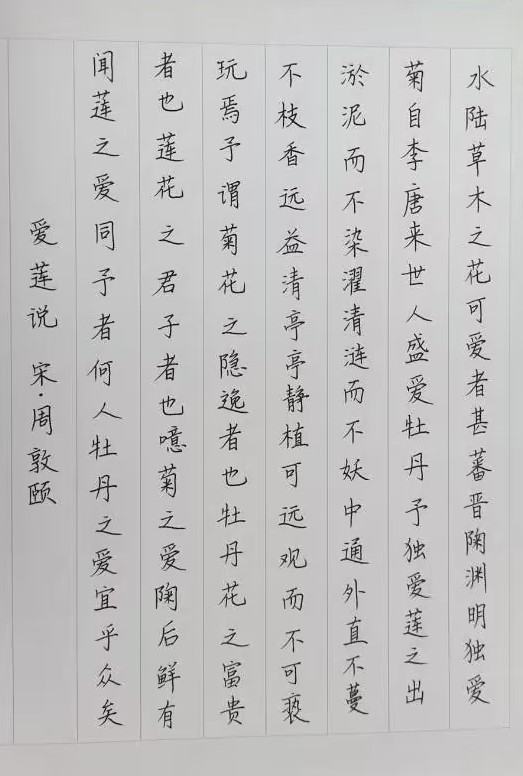 水陆草木之花可爱者甚蕃晋陶渊明独爱
菊自李唐来世人盛爱牡丹予独爱莲之出
淤泥而不染濯清涟而不妖中通外直不蔓
不枝香远益清亭亭静植可远观而不可亵
玩焉予谓菊花之隐逸者也牡丹花之富贵
者也莲花之君子者也噫菊之爱陶后鲜有
闻莲之爱同予者何人牡丹之爱宜乎众矣
爱莲说 宋·周敦颐